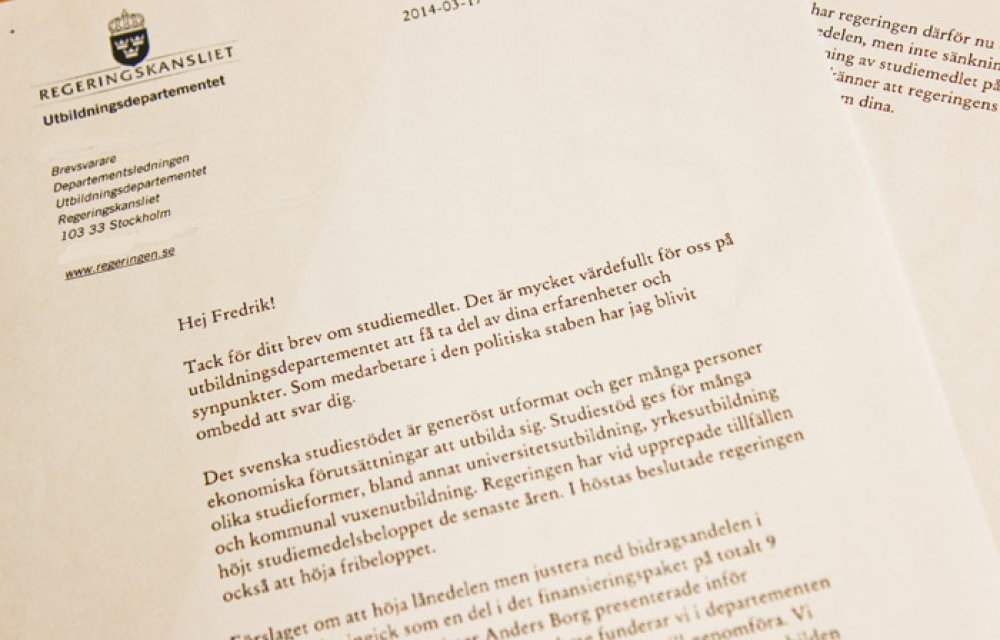 2014-03-17
REGERINGSKANSLIET
Utbildningsdepartementet
Brevsvarare
Departementsledningen
Utbildningsdepartementet
Regeringskansliet
103 33 Stockholm
www.regeringen.se
Hej Fredrik!
Tack för ditt brev om studiemedlet. Det är mycket värdefullt för oss på
utbildningsdepartementet att få ta del av dina erfarenheter och
synpunkter. Som medarbetare i den politiska staben har jag blivit
ombedd att svar dig.
Det svenska studiestödet är generöst utformat och ger många personer
ekonomiska förutsättningar att utbilda sig. Studiestöd ges för många
olika studieformer, bland annat universitetsutbildning, yrkesutbildning
och kommunal vuxenutbildning. Regeringen har vid upprepade tillfällen
höjt studiemedelsbeloppet de senaste åren. I höstas beslutade regeringen
också att höja fribeloppet.
Förslaget om att höja lånedelen men justera ned bidragsandelen i
ingick som en del i det finansieringspaket på totalt 9
Anders Borg presenterade inför
funderar vi i departementen
genomföra. Vi
har regeringen därför nu
edelen, men inte sänknin
ning av studiemedlet på
känner att regeringens
m dina.